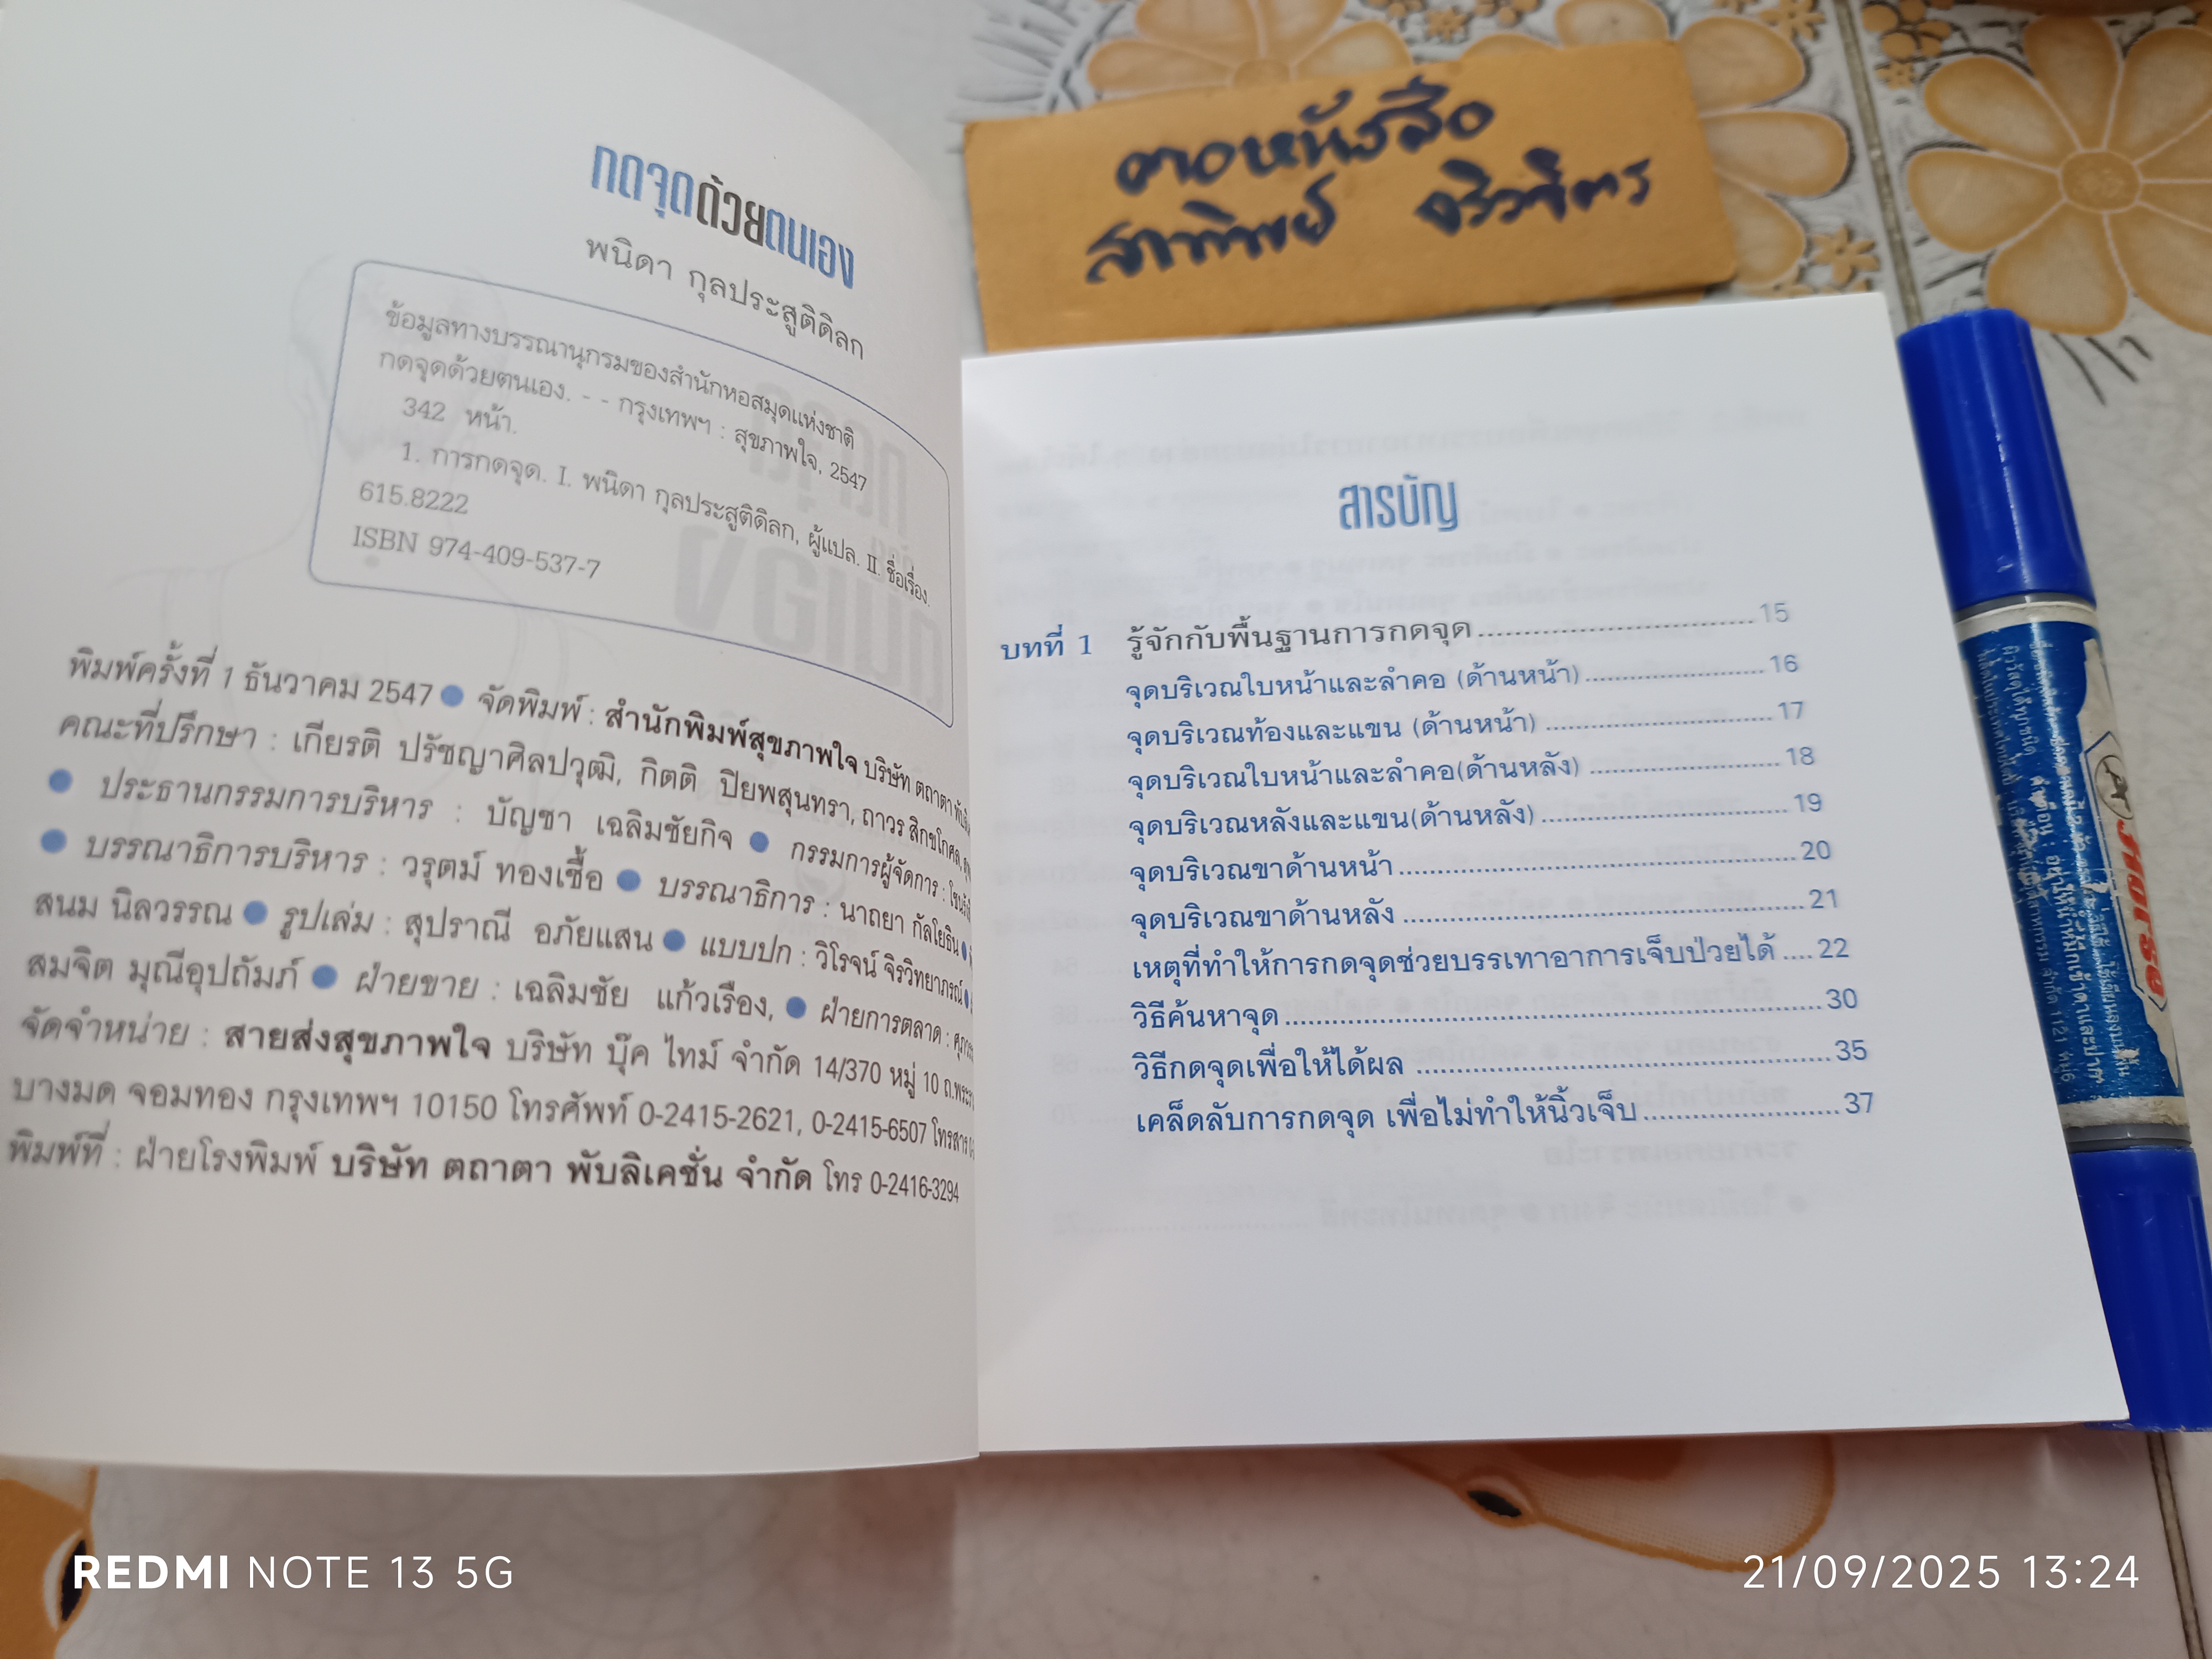 กดจุดด้วยตนเอง
พนิดา กุลประสูติดิลก
ข้อมูลทางบรรณานุกรมของสำนักหอสมุดแห่งชาติ
กดจุดด้วยตนเอง. - - กรุงเทพฯ : สุขภาพใจ, 2547
342 หน้า.
1. การกดจุด. I. พนิดา กุลประสูติดิลก, ผู้แปล. II. ชื่อเรื่อง.
615.8222
ISBN 974-409-537-7
พิมพ์ครั้งที่ 1 ธันวาคม 2547 ● จัดพิมพ์ : สำนักพิมพ์สุขภาพใจ บริษัท ตถาตา
คณะที่ปรึกษา : เกียรติ ปรัชญาศิลปวุฒิ, กิตติ ปิยพสุนทรา, ถาวร สิกขโกศล,
● ประธานกรรมการบริหาร : บัญชา เฉลิมชัยกิจ ● กรรมการผู้จัดการ :
● บรรณาธิการบริหาร : วรุตม์ ทองเชื้อ ● บรรณาธิการ : นาถยา กัลโยธิน ●
สนม นิลวรรณ ● รูปเล่ม : สุปราณี อภัยแสน ● แบบปก : วิโรจน์ จิรวิทยาภรณ์ ●
สมจิต มุณีอุปถัมภ์ ● ฝ่ายขาย : เฉลิมชัย แก้วเรือง, ● ฝ่ายการตลาด :
จัดจำหน่าย : สายส่งสุขภาพใจ บริษัท บุ๊ค ไทม์ จำกัด 14/370 หมู่ 10
บางมด จอมทอง กรุงเทพฯ 10150 โทรศัพท์ 0-2415-2621, 0-2415-6507 โทรสาร
พิมพ์ที่ : ฝ่ายโรงพิมพ์ บริษัท ตถาตา พับลิเคชั่น จำกัด โทร 0-2416-3294
คาอหนังสือ
สารบัญ
บทที่ 1 รู้จักกับพื้นฐานการกดจุด 15
จุดบริเวณใบหน้าและลำคอ (ด้านหน้า) 16
จุดบริเวณท้องและแขน (ด้านหน้า) 17
จุดบริเวณใบหน้าและลำคอ(ด้านหลัง) 18
จุดบริเวณหลังและแขน(ด้านหลัง) 19
จุดบริเวณขาด้านหน้า 20
จุดบริเวณขาด้านหลัง 21
เหตุที่ทำให้การกดจุดช่วยบรรเทาอาการเจ็บป่วยได้ 22
วิธีค้นหาจุด 30
วิธีกดจุดเพื่อให้ได้ผล 35
เคล็ดลับการกดจุด เพื่อไม่ทำให้นิ้วเจ็บ 37
Horse
REDMI NOTE 13 5G
21/09/2025 13:24